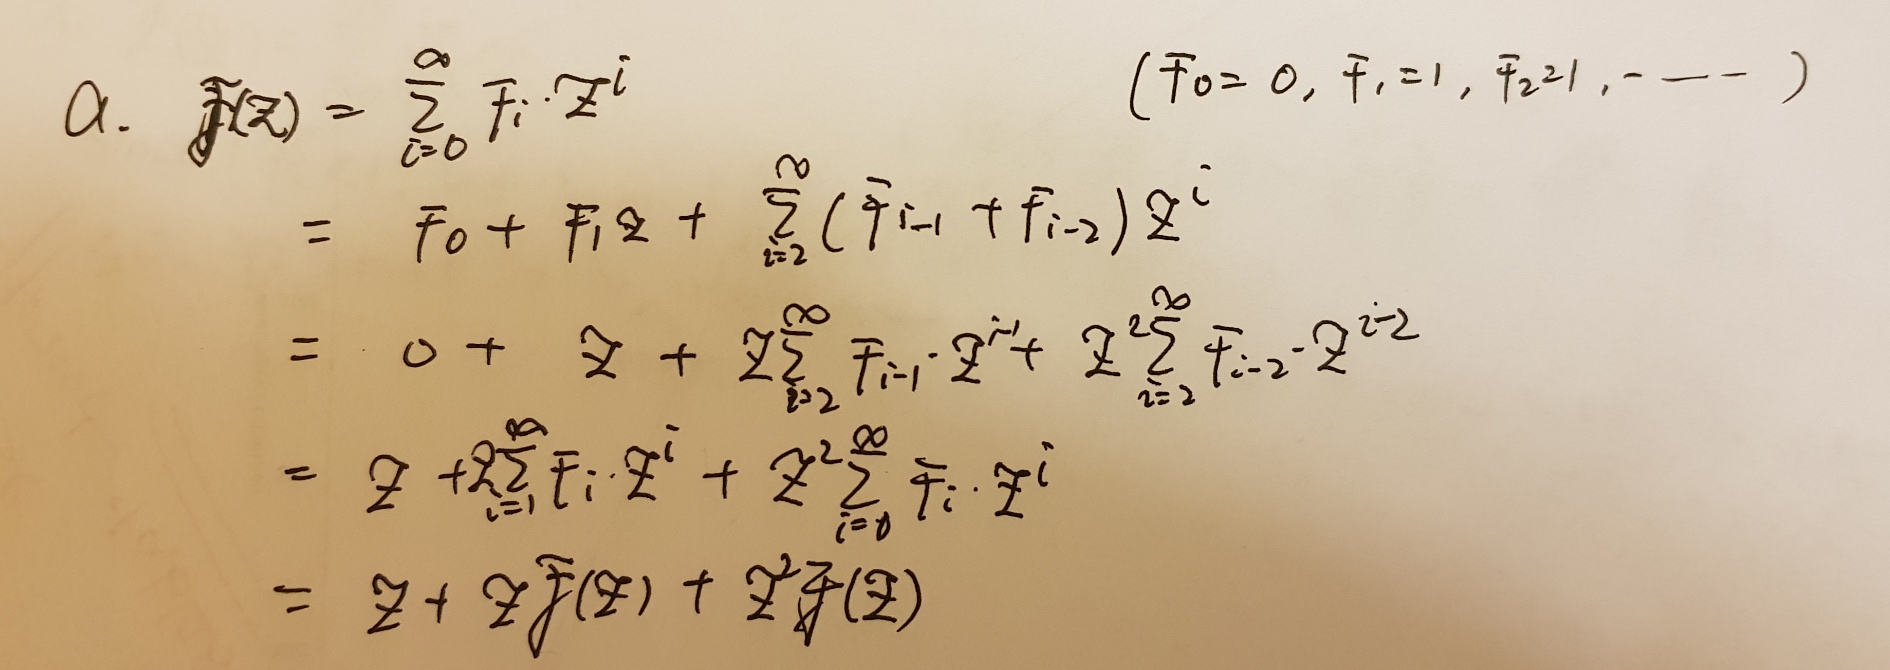 a. 𝓕(z) = ∑_{i=0}^{∞} F_i · z^i (F_0 = 0, F_1 = 1, F_2 = 1, - - - -)
= F_0 + F_1 z + ∑_{i=2}^{∞} (F_{i-1} + F_{i-2}) z^i
= 0 + z + z ∑_{i=2}^{∞} F_{i-1} · z^{i-1} + z^2 ∑_{i=2}^{∞} F_{i-2} · z^{i-2}
= z + z ∑_{i=1}^{∞} F_i · z^i + z^2 ∑_{i=0}^{∞} F_i · z^i
= z + z 𝓕(z) + z^2 𝓕(z)